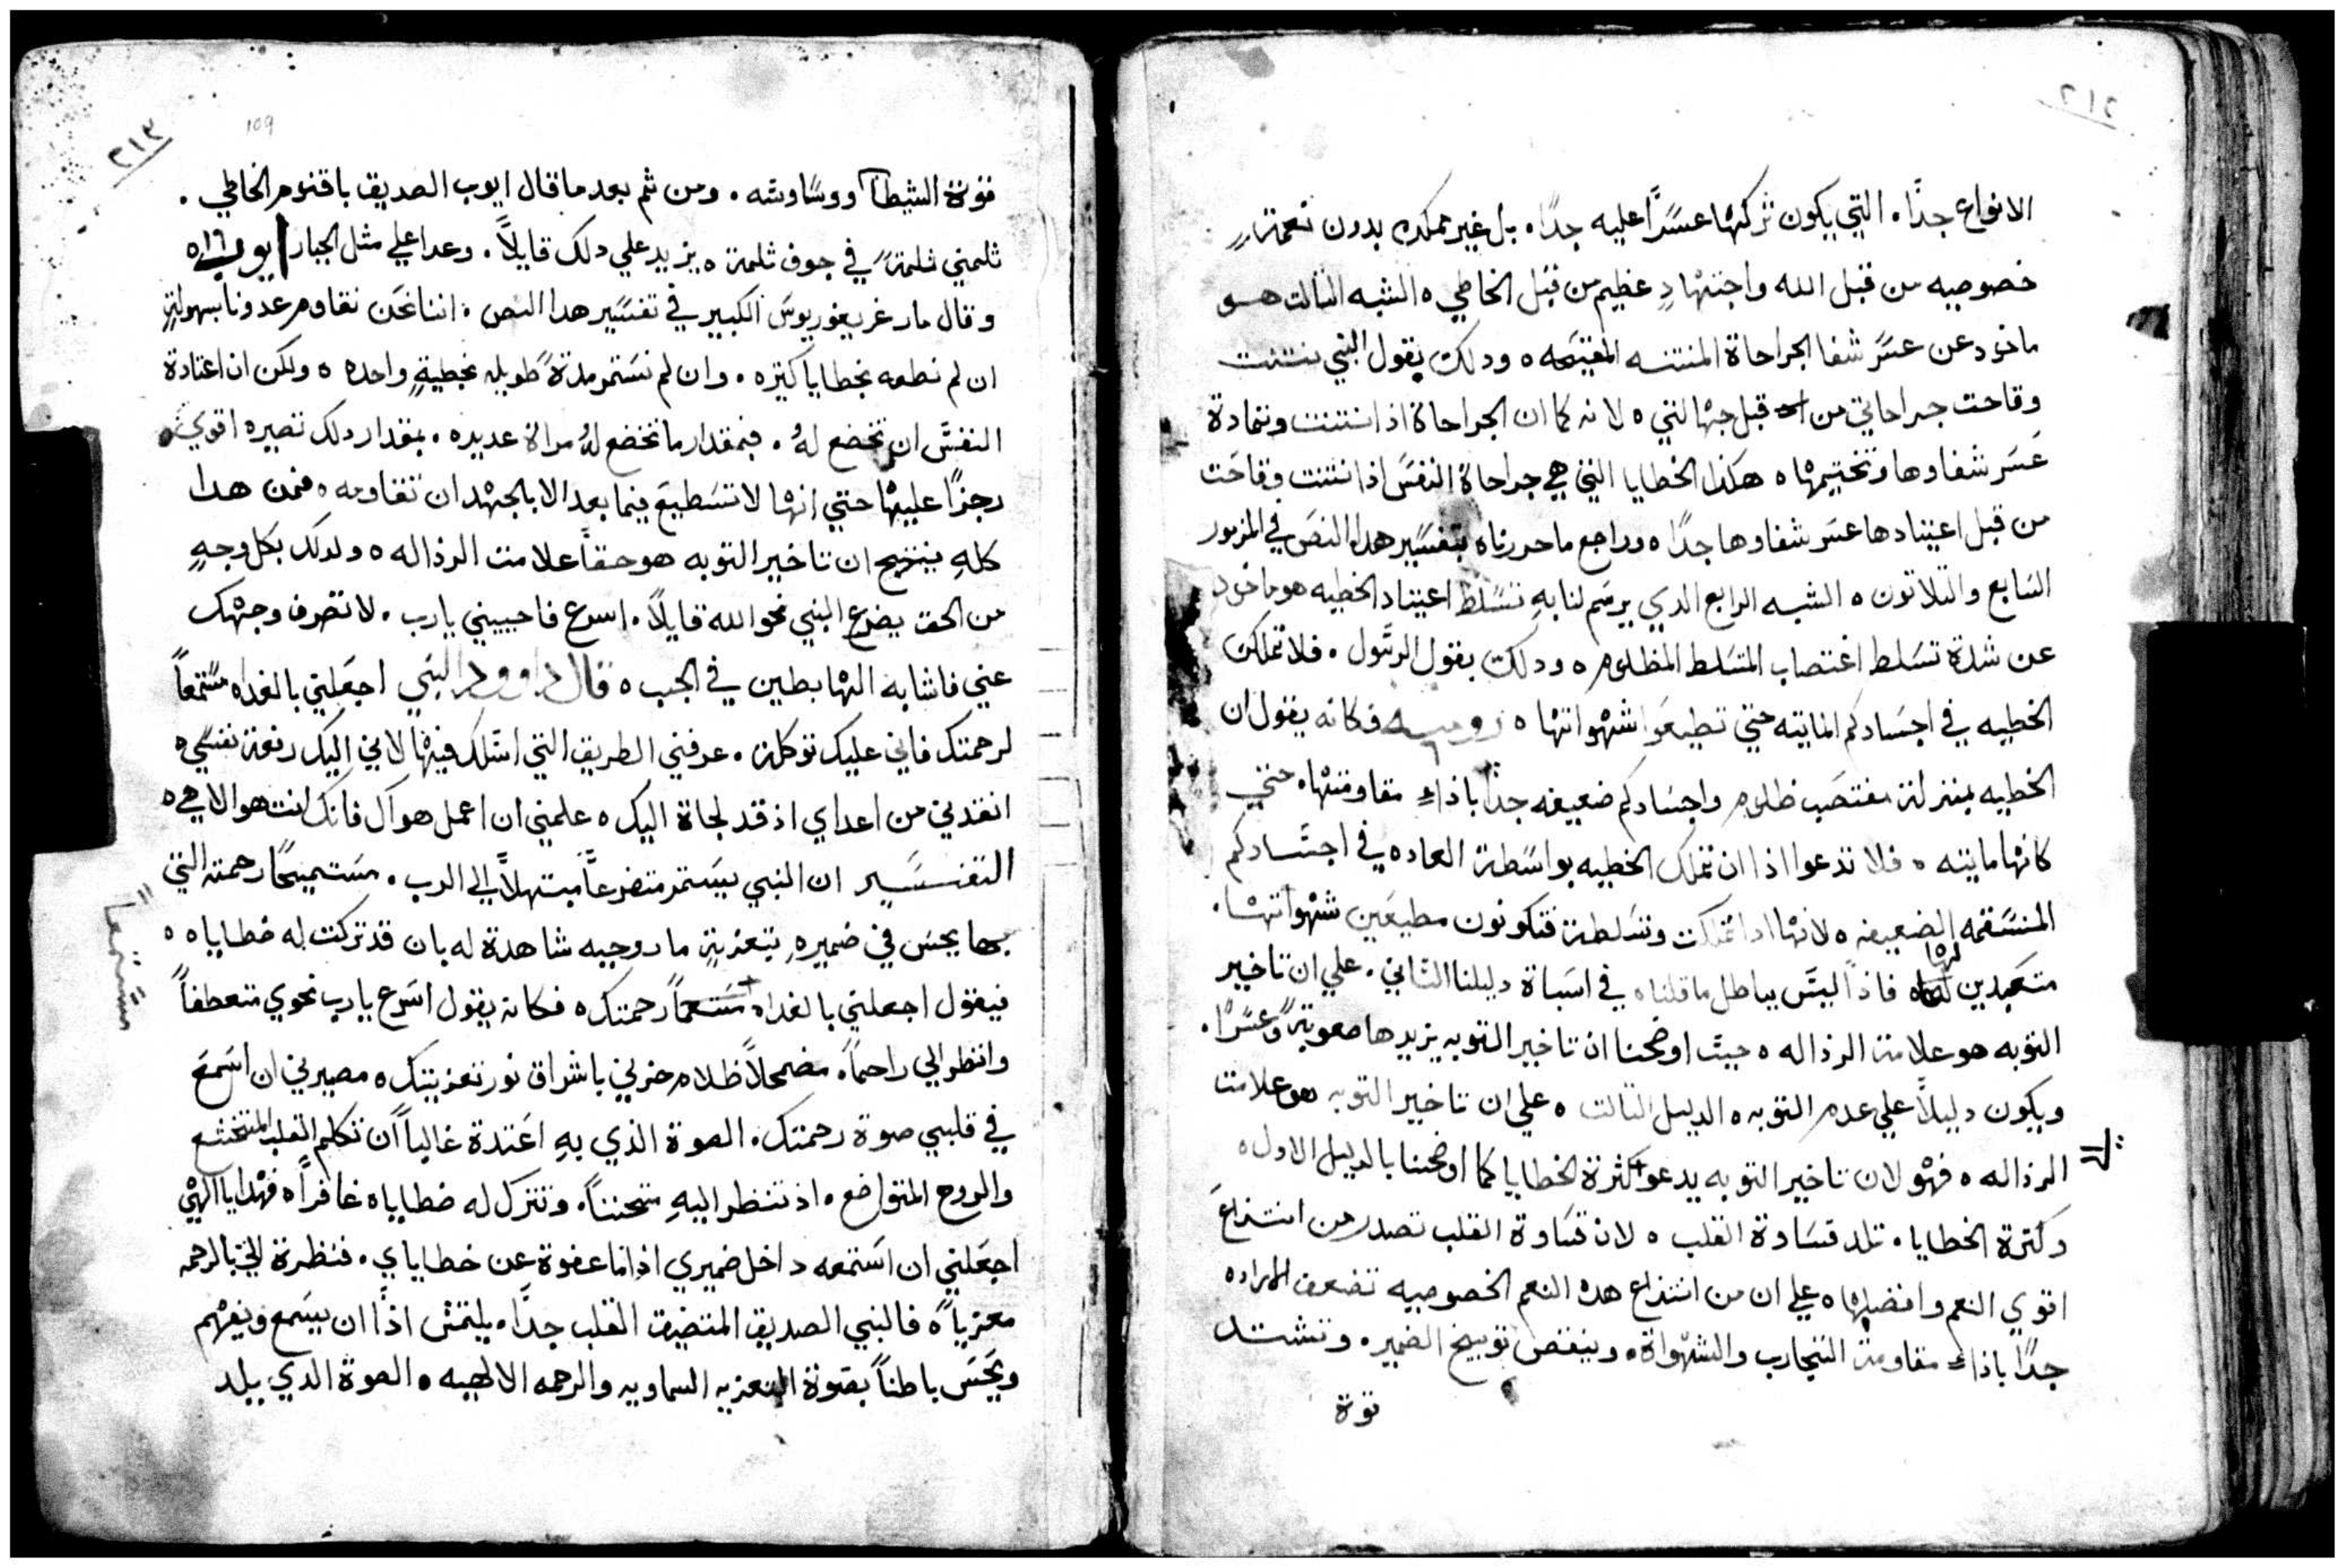 ٢١٢
الانواع جدًا. التي يكون تركها عسرًا عليه جدًا. بل غير ممكن بدون نعمةٍ
خصوصيه من قبل الله واجتهادٍ عظيم من قبل الخاطي ٥ الشبه التالت هو
ماخود عن عسر شفا الجراحاة المنتنه المقيحه ٥ ودلك بقول النبي نتنت
وقاحت جراحاتي من قبل جهالتي ٥ لانه كما ان الجراحاة اذا نتنت وتمادة
عسر شفاوها وتختيمها ٥ هكذا الخطايا التي هي جراحاة النفس اذا نتنت وقاحت
من قبل اعتيادها عسر شفاوها جدًا ٥ وراجع ما حررناه بتفسير هدا النص في المزمور
السابع والتلاتون ٥ الشبه الرابع الدي يرسم لنا بهِ تسلط اعتياد الخطيه هو ماخود
عن شدة تسلط اغتصاب المتسلط المظلوم ٥ ودلك بقول الرسول. فلا تملكن
الخطيه في اجسادكم المايته حتي تطيعوا شهواتها ٥ روميه فكانه يقول ان
الخطيه بمنزلة مغتصب ظلوم واجسادكم ضعيفه جدًا باذاء مقاومتها ٥ حتي
كانها مايته ٥ فلا تدعوا اذا ان تملك الخطيه بواسطة العاده في اجسادكم
المنسقمه الضعيفه ٥ لانها ادا تملكت وتسلطة فتكونون مطيعين شهواتها.
متعبدين لها ٥ فاذًا ليس بباطل ما قلناه في اسباة دليلنا التاني. علي ان تاخير
التوبه هو علامة الرذاله ٥ حيث اوضحنا ان تاخير التوبه يزيدها صعوبةً وعسرًا.
ويكون دليلاً علي عدم التوبه ٥ الدليل التالت ٥ علي ان تاخير التوبه هو علامت
الرذاله ٥ فهو لان تاخير التوبه يدعو كثرة الخطايا كما اوضحنا بالدليل الاول ٥
وكترة الخطايا. تلد قساوة القلب ٥ لان قساوة القلب تصدر من انتزاع
اقوي النعم وافضلها ٥ علي ان من انتزاع هده النعم الخصوصيه تضعف الاراده
جدًا باذاء مقاومة التجارب والشهواة. وينقص توبيخ الضمير. وتشتد
قوة
٢١٣
109
قوة الشيطان ووساوسه. ومن ثم بعد ما قال ايوب الصديق باقنوم الخاطي.
ثلمني ثلمةً في جوف ثلمة ٥ يزيد علي دلك قايلاً. وعدا علي مثل الجبار ايوب ١٦ ٥
وقال مار غريغوريوس الكبير في تفسير هدا النص. اننا نحن نقاوم عدونا بسهولةٍ
ان لم نطعه بخطايا كتره. وان لم نستمر مدةً طويله بخطيةٍ واحده ٥ ولكن ان اعتادة
النفس ان تخضع لهُ. فبمقدار ما تخضع لهُ مراة عديده. بمقدار دلك تصيره اقوي
رجزًا عليها حتي انها لا تستطيع فيما بعد الا بالجهد ان تقاومه ٥ فمن هدا
كلهِ ينتج ان تاخير التوبه هو حقاً علامت الرذاله ٥ ولدلك بكل وجهٍ
من الحق يضرع النبي نحو الله قايلاً. اسرع فاجيبني يارب. لا تصرف وجهك
عني فاشابه الهابطين في الجب ٥ قال داوود النبي اجعلني بالغداه مستمعاً
لرحمتك فاني عليك توكلة. عرفني الطريق التي اسلك فيها لاني اليك رفعة نفسي ٥
انقدني من اعداي اذ قد لجاة اليك ٥ علمني ان اعمل هواك فانك انت هو الاهي ٥
التفسير ان النبي يستمر متضرعاً مبتهلاً الي الرب. مستميحًا رحمته التي
بها يحس في ضميرهِ بتعزيةٍ ما روحيه شاهدة له بان قد تركت له خطاياه ٥
فيقول اجعلني بالغداه مستمعاً رحمتك ٥ فكانه يقول اسرع يارب نحوي متعطفاً
مستمعاً
وانظر الي راحماً. مضمحلاً ظلام حزني باشراق نور تعزيتك ٥ مصيرني ان اسمع
في قلبي صوة رحمتك. الصوة الذي بهِ اعتدة غالباً ان تكلم القلب المتخشع
والروح المتواضع. اذ تنظر اليهِ متحنناً. وتترك له خطاياه غافراً ٥ فهدا يا الهي
اجعلني ان استمعه داخل ضميري اذا ما عفوة عن خطاياي. فنظرة الي بالرحمه
معزياً ٥ فالنبي الصديق المتضيق القلب جدًا. يلتمس اذًا ان يسمع ويفهم
ويحس باطناً بقوة التعزيه السماويه والرحمه الالهيه ٥ الصوة الدي يلد